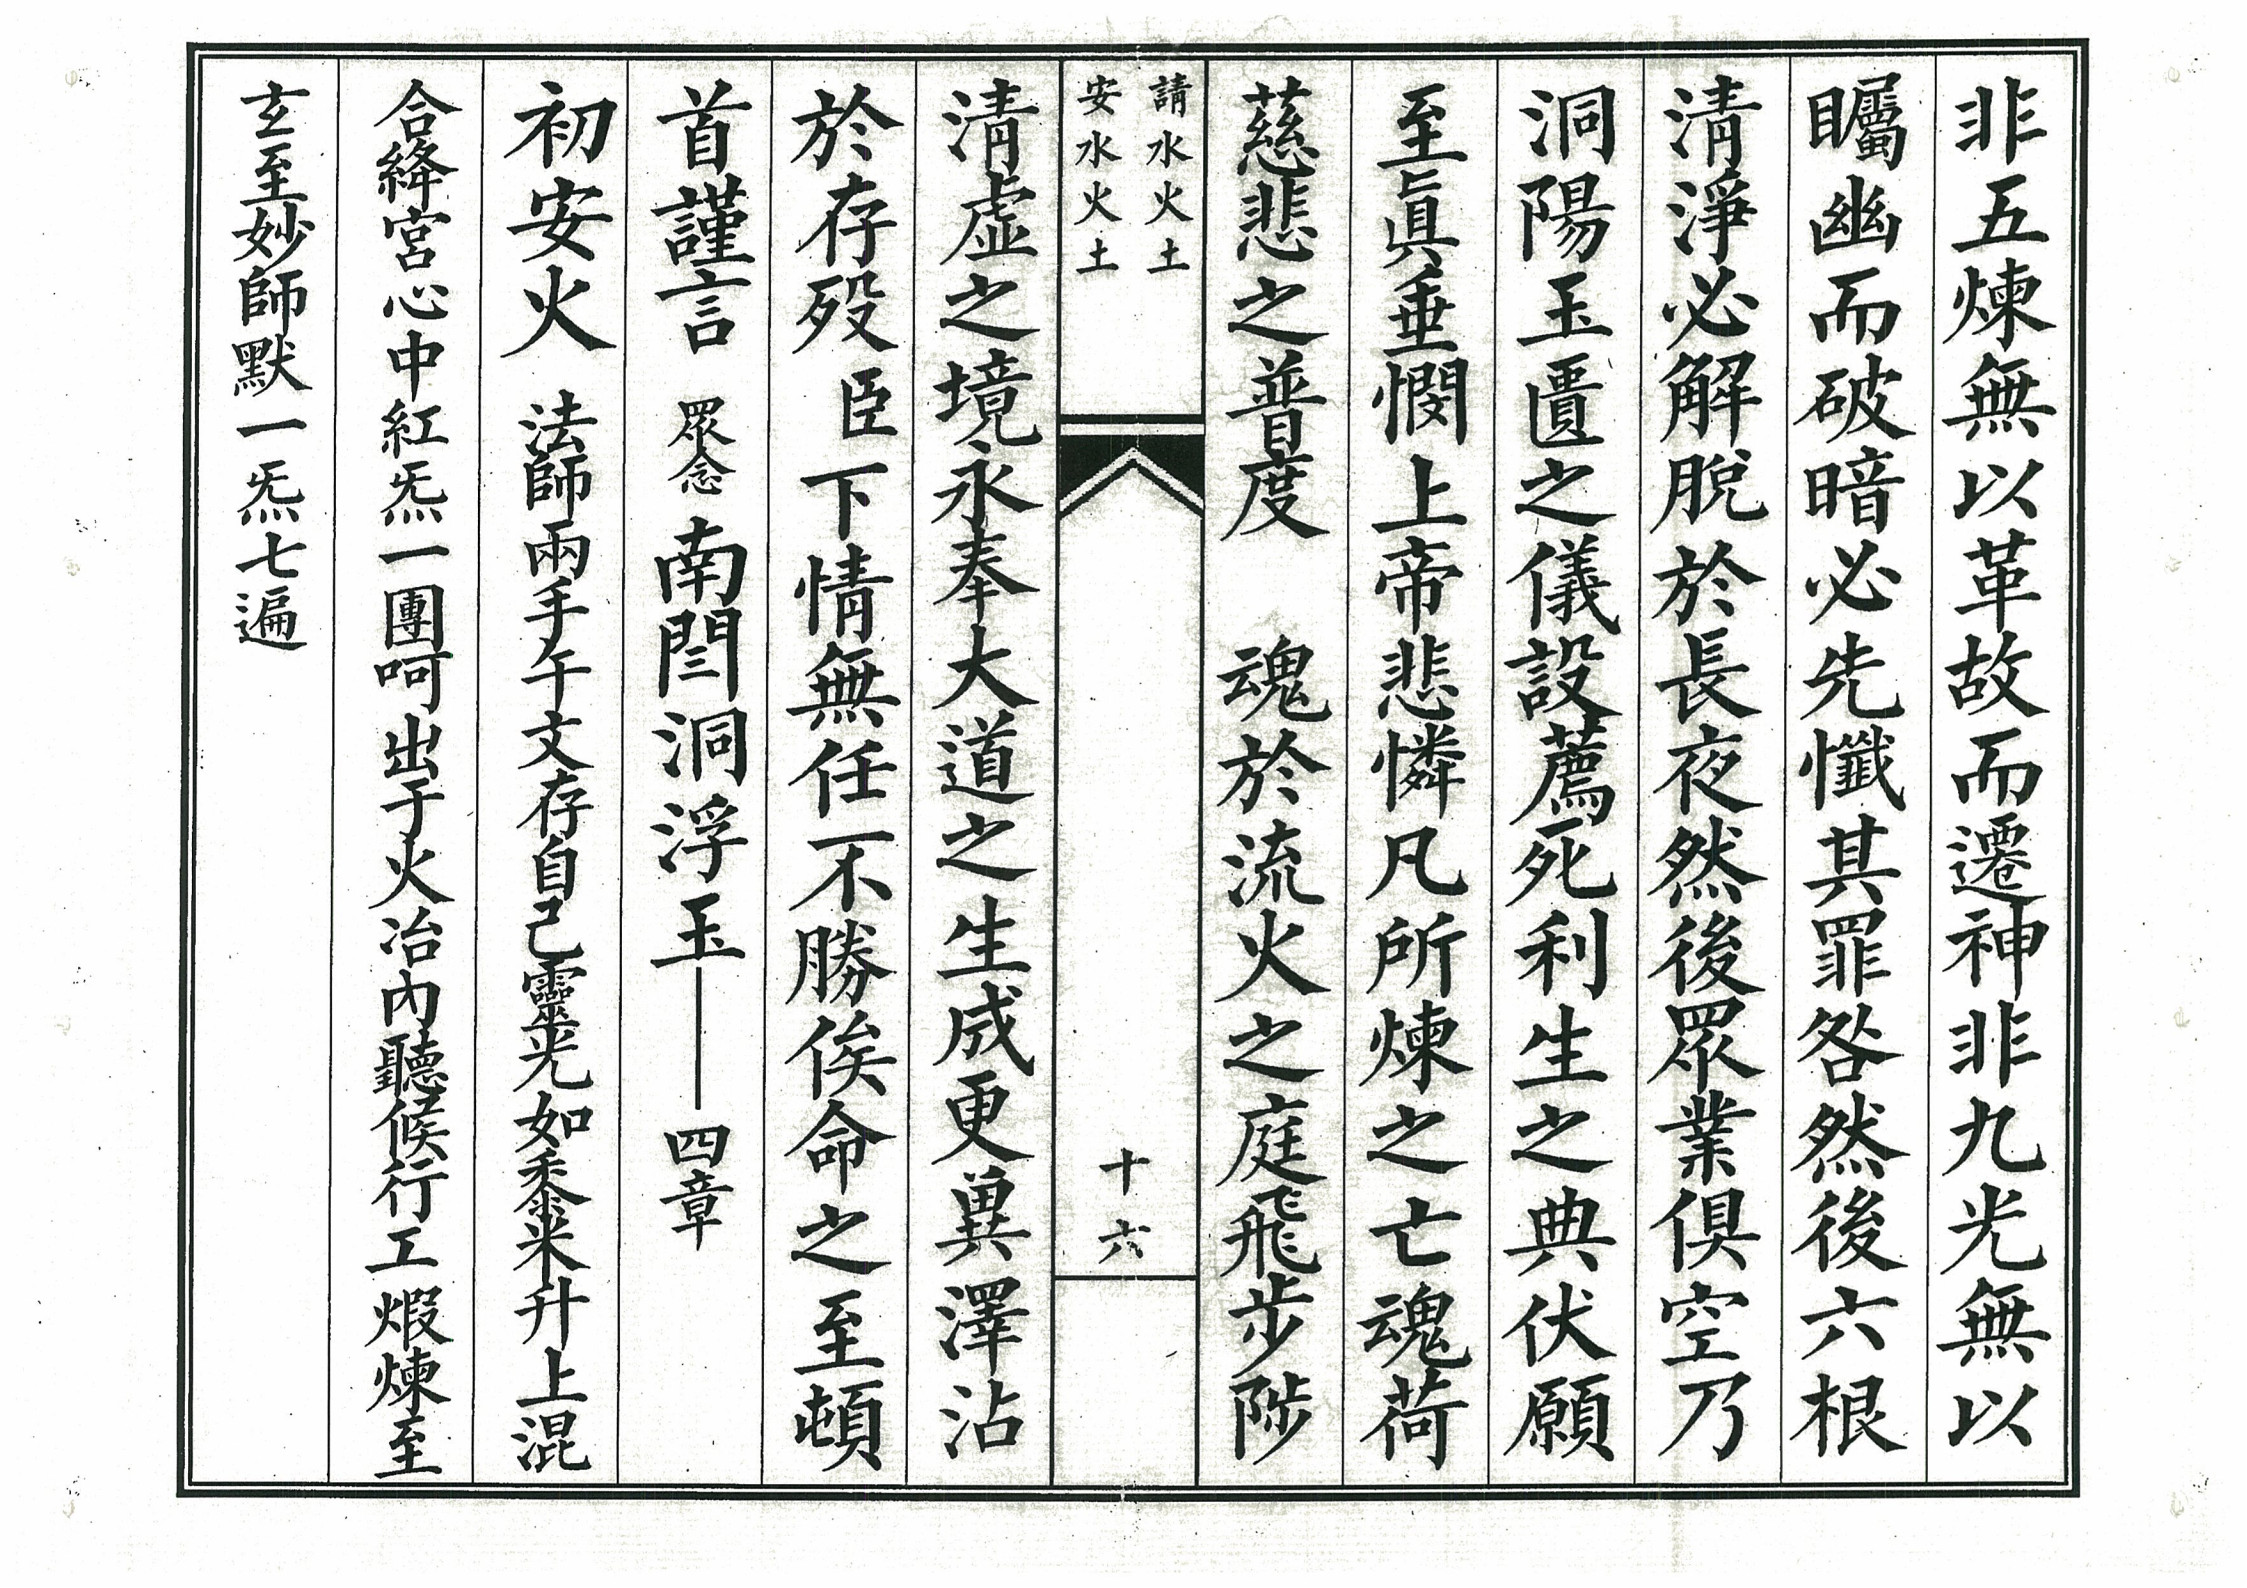 非五煉無以革故而遷神非九光無以
矚幽而破暗必先懺其罪咎然後六根
淸淨必解脫於長夜然後眾業俱空乃
洞陽玉匱之儀設薦死利生之典伏願
至眞垂憫上帝悲憐凡所煉之亡魂荷
慈悲之普度　魂於流火之庭飛步陟
請水火土
安水火土
十六
淸虛之境永奉大道之生成更兾澤沾
於存歿臣下情無任不勝俟命之至頓
首謹言 眾念 南閏洞浮玉——四章
初安火 法師兩手午文存自己靈光如黍米升上混
合絳宮心中紅炁一團呵出于火冶內聽候行工煅煉至
玄至妙師默一炁七遍